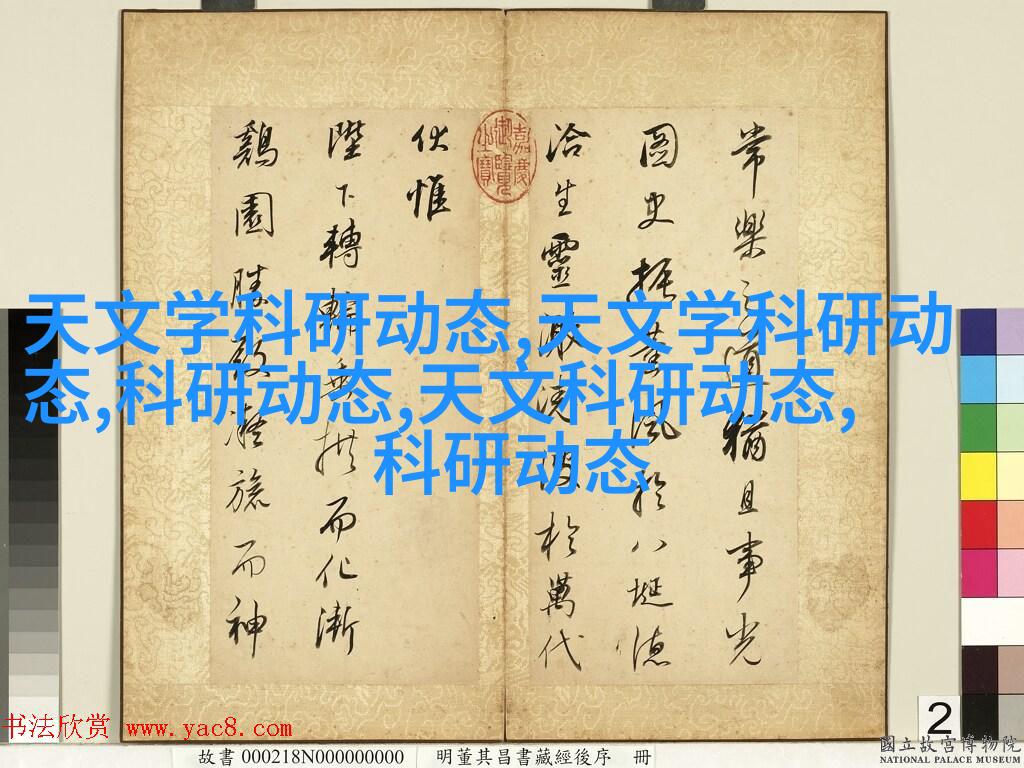 常樂之道猶且事光
圖史振葉風於八埏德
洽生靈激流波於萬代
伏惟
陛下轉輪垂拱而化漸
鷄園勝殿凝旒而神
嘉慶御覽之寶
天文学科研动态,天文学科研动
态,科研动态,天文科研动态,
科研动态
2
书法欣赏 www.yac8.com
故書 000218N000000000 明董其昌書藏經後序 冊
國立故宮博物院
NATIONAL PALACE MUSEUM